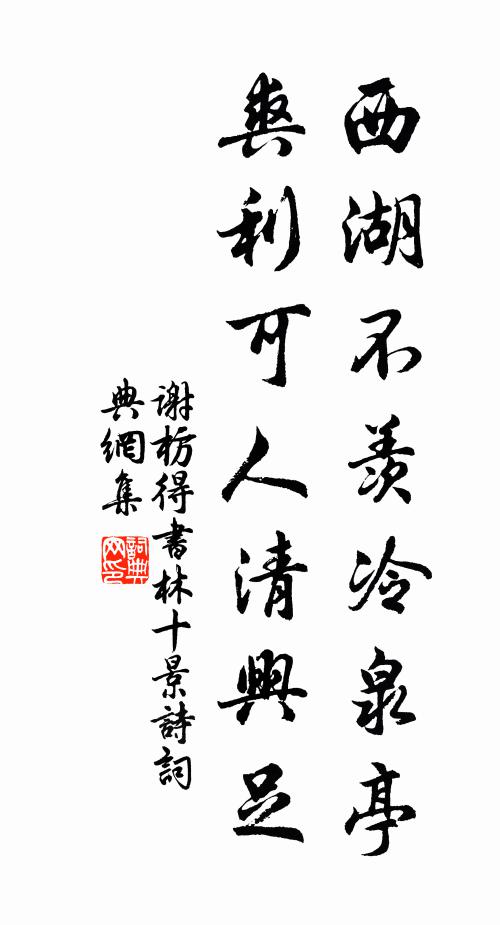 西湖不羨冷泉亭
爽利可人清興足
謝枋得書林十景詩詞
典網集
詞典
网印